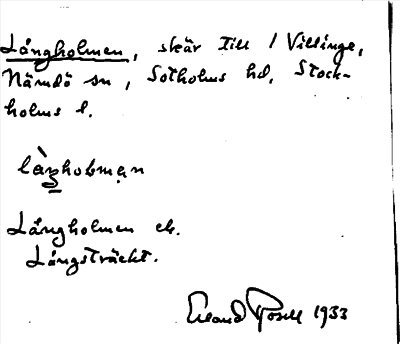 Långholmen, skär till / Villinge,
Nämdö sn, Sotholms hd, Stock-
holms l.
långholmən
Långholmen ek.
Långsträckt.
Erland Rosell 1933